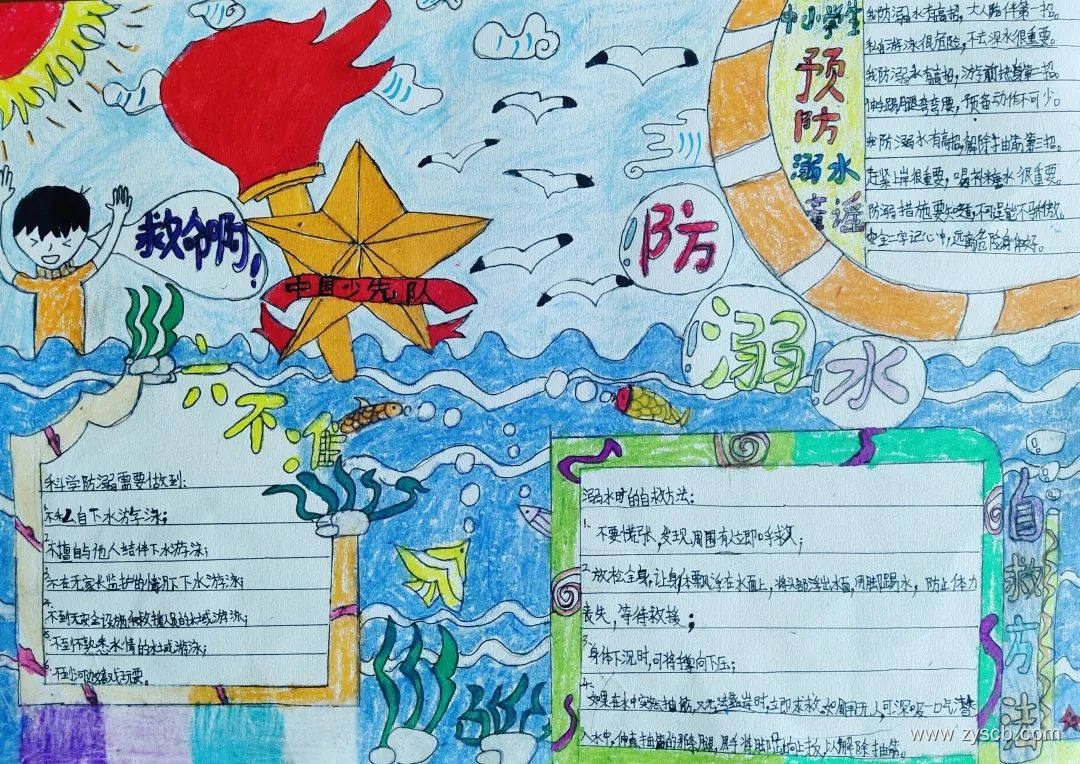 中小学生
预
防
溺水
童谣
我防溺水有高招,大人陪伴第一招。
私自游泳很危险,不去深水很重要。
我防溺水有高招,游前扶身第二招。
伸踢腿弯弯腰,预备动作不可少。
我防溺水有高招,解除抽筋第三招。
赶紧上岸很重要,喝水很重要。
防溺措施要知道,不可逞能不骄傲。
安全二字记心中,远离危险身体好。
救命啊!
中国少先队
防
溺
水
六不准
科学防溺需要做到:
1.不私自下水游泳;
2.不擅自与他人结伴下水游泳;
3.不在无家长监护的情况下下水游泳;
4.不到无安全设施和救援人员的水域游泳;
5.不到不熟悉水情的水域游泳;
6.不到河边嬉戏玩耍。
溺水时的自救方法:
1.不要慌张,发现周围有立即呼救;
2.放松全身,让身体飘浮在水面上,将头部浮出水面,用脚踢水,防止体力
丧失,等待救援;
3.身体下沉时,可将手掌向下压;
4.如果在水中突然抽筋,又无法靠岸时,立即求救。如周围无人,可深吸一口气潜
入水中,伸直抽筋的那条腿,用手将脚趾向上扳,以解除抽筋。
自救方法
www.zyscb.com